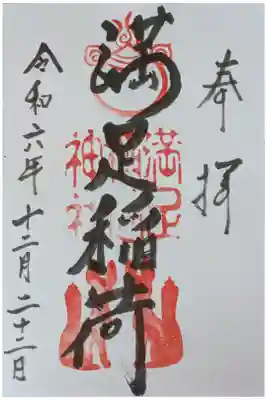 奉拝
満足稲荷
満足稲荷神社
令和六年十二月二十二日